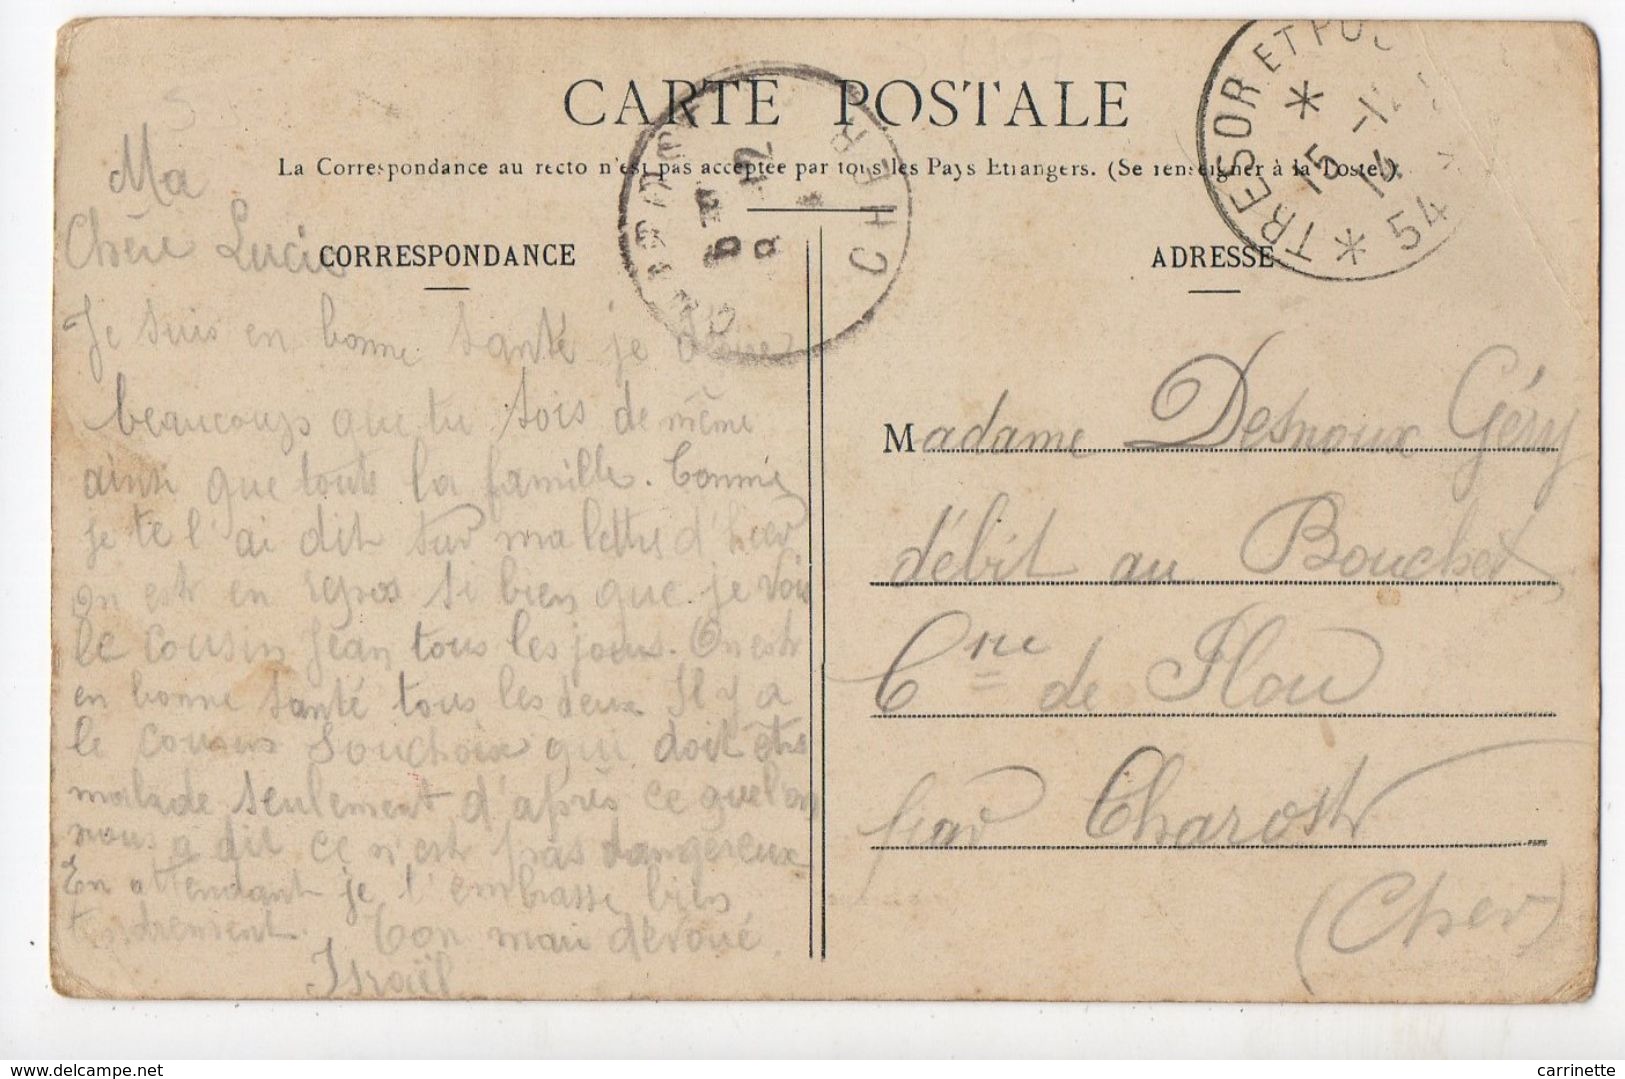 CARTE POSTALE
La Correspondance au recto n'est pas acceptée par tous les Pays Etrangers. (Se renseigner à la Poste.)
CORRESPONDANCE
ADRESSE
TRESOR ET POS
15 -12
14
* 54 *
CHER
Ma
Chère Lucie
Je suis en bonne santé je
beaucoups que tu sois de même
ainsi que toute la famille. Comme
je te l'ai dit sur ma lettre d'hier
on est en repos si bien que je vois
le cousin Jean tous les jours. On est
en bonne santé tous les deux Il y a
le cousin Souchoix qui doit être
malade seulement d'après ce quel on
nous a dit ce n'est pas dangereux
En attendant je t'embrasse bien
tendrement. Ton mari dévoué.
Israël
Madame Desnoux Géry
débit au Bouchet
Cne de Plou
par Charost
(Cher)
delcampe.net
carrinette